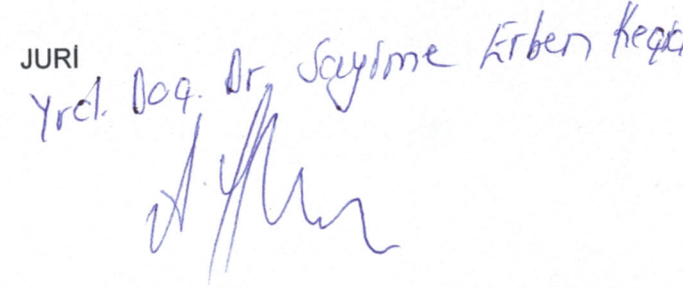 JURİ
Yrd. Doç. Dr. Sayime Erben